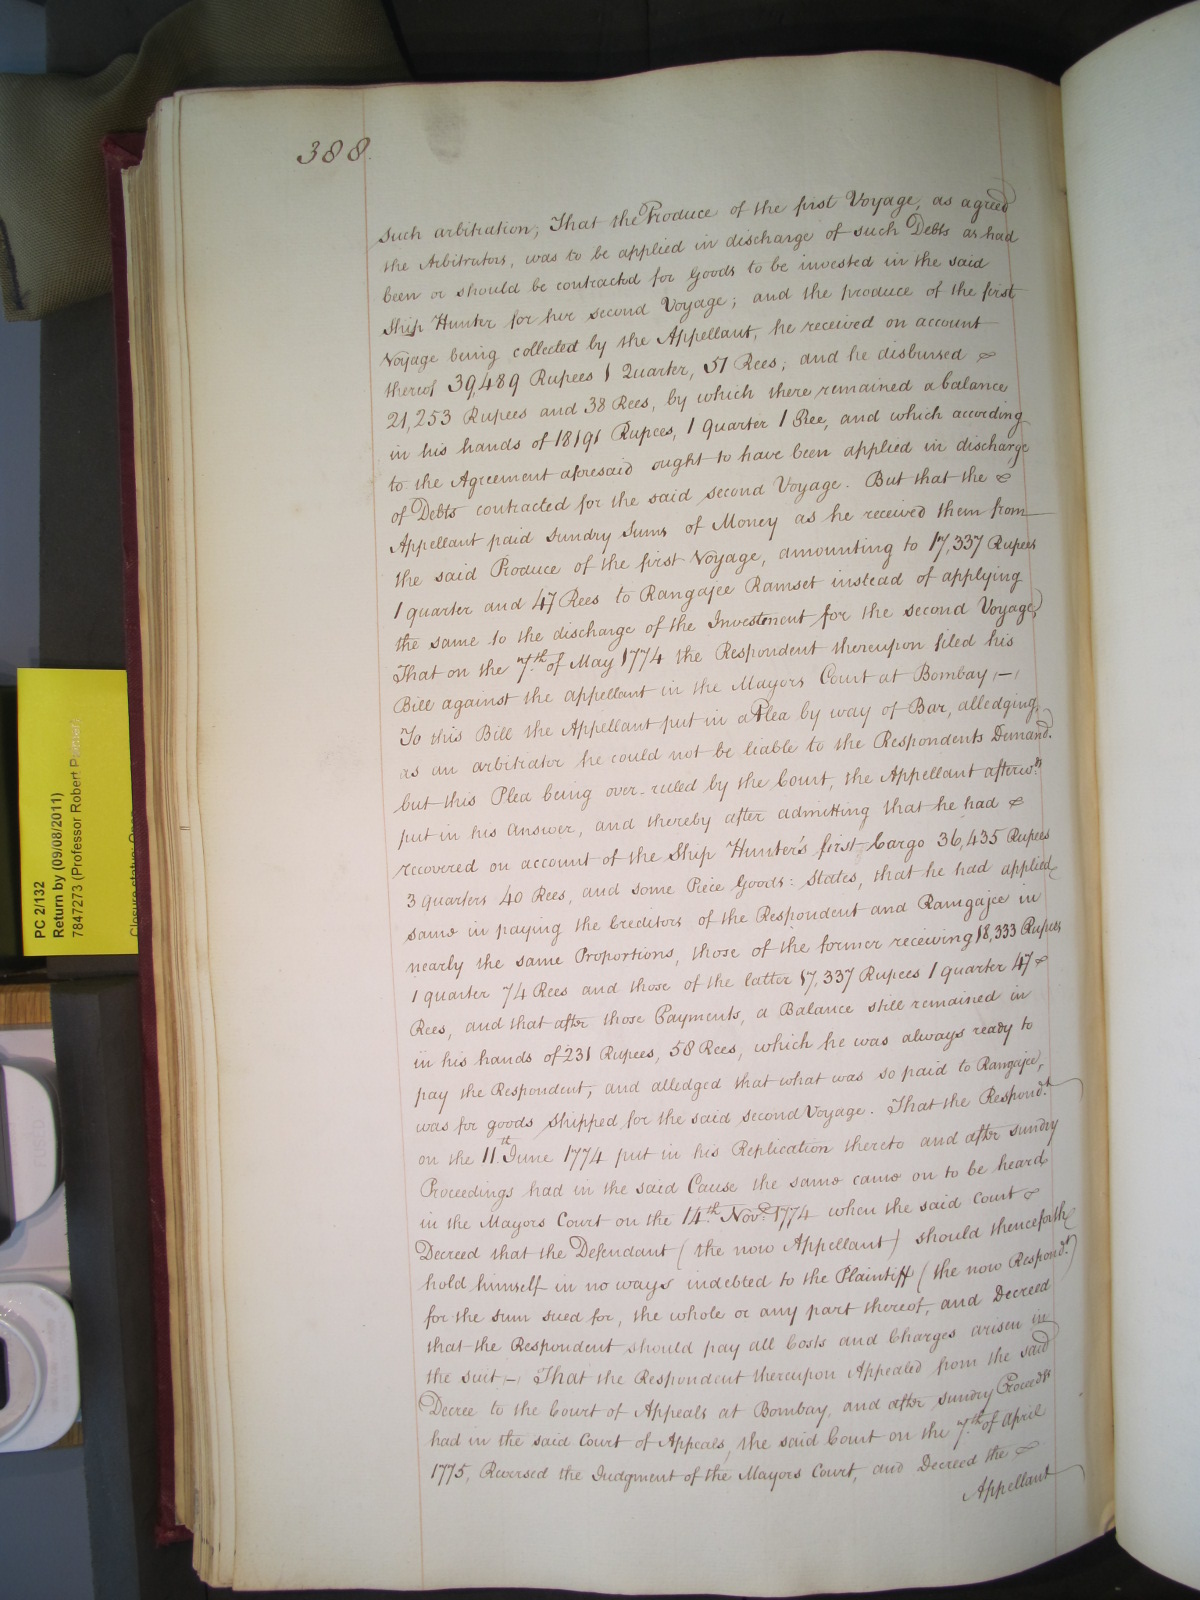 388.
such arbitration; That the Produce of the first Voyage, as agreed
the Arbitrators, was to be applied in discharge of such Debts as had
been or should be contracted for Goods to be invested in the said
Ship Hunter for her second Voyage; and the produce of the first
Voyage being collected by the Appellant, he received on account
thereof 39,489 Rupees 1 Quarter, 51 Rees; and he disbursed
21,253 Rupees and 38 Rees, by which there remained a balance
in his hands of 18191 Rupees, 1 quarter 1 Ree, and which according
to the Agreement aforesaid ought to have been applied in discharge
of Debts contracted for the said second Voyage. But that the
Appellant paid sundry Sums of Money as he received them from
the said Produce of the first Voyage, amounting to 17,337 Rupees
1 quarter and 47 Rees to Rangajee Ramset instead of applying
the same to the discharge of the Investment for the second Voyage
That on the 7.th of May 1774 the Respondent thereupon filed his
Bill against the appellant in the Mayors Court at Bombay,—,
To this Bill the Appellant put in a Plea by way of Bar, alledging,
as an arbitrator he could not be liable to the Respondents Demand.
but this Plea being over-ruled by the Court, the Appellant afterw.ds
put in his Answer, and thereby after admitting that he had
recovered on account of the Ship Hunter's first Cargo 36,435 Rupees
3 quarters 40 Rees, and some Piece Goods: States, that he had applied
same in paying the Creditors of the Respondent and Ramgajee in
nearly the same Proportions, those of the former receiving 18,333 Rupees
1 quarter 74 Rees and those of the latter 17,337 Rupees 1 quarter 47
Rees, and that after those Payments, a Balance still remained in
in his hands of 231 Rupees, 58 Rees, which he was always ready to
pay the Respondent, and alledged that what was so paid to Rangajee,
was for goods shipped for the said second Voyage. That the Respond.t
on the 11.th June 1774 put in his Replication thereto and after sundry
Proceedings had in the said Cause the same came on to be heard
in the Mayors Court on the 14.th Nov.r 1774 when the said Court
Decreed that the Defendant (the now Appellant) should thenceforth
hold himself in no ways indebted to the Plaintiff (the now Respond.t)
for the sum sued for, the whole or any part thereof, and Decreed
that the Respondent should pay all Costs and Charges arisen in
the suit,—, That the Respondent thereupon Appealed from the said
Decree to the Court of Appeals at Bombay, and after sundry Proceed.s
had in the said Court of Appeals, the said Court on the 7.th of April
1775, Reversed the Judgment of the Mayors Court, and Decreed the
Appellant
PC 2/132
Return by (09/08/2011)
7847273 (Professor Robert